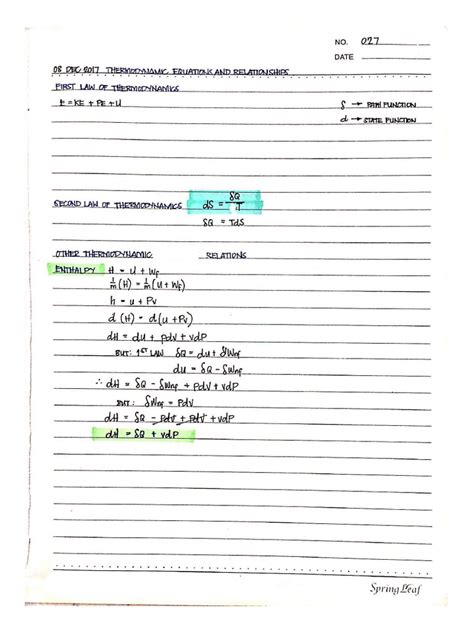 NO. 027
DATE
08 DEC 2017 THERMODYNAMIC EQUATIONS AND RELATIONSHIPS
FIRST LAW OF THERMODYNAMICS
E = KE + PE + U
δ → PATH FUNCTION
d → STATE FUNCTION
SECOND LAW OF THERMODYNAMICS dS = δQ/T
δQ = TdS
OTHER THERMODYNAMIC RELATIONS
ENTHALPY H = U + Wf
1/m (H) = 1/m (U + Wf)
h = u + Pv
d (H) = d(U + PV)
dH = dU + PdV + VdP
BUT: 1ST LAW δQ = dU + δWnf
dU = δQ - δWnf
∴ dH = δQ - δWnf + PdV + VdP
BUT: δWnf = PdV
dH = δQ - PdV + PdV + VdP
dH = δQ + VdP
Spring Leaf